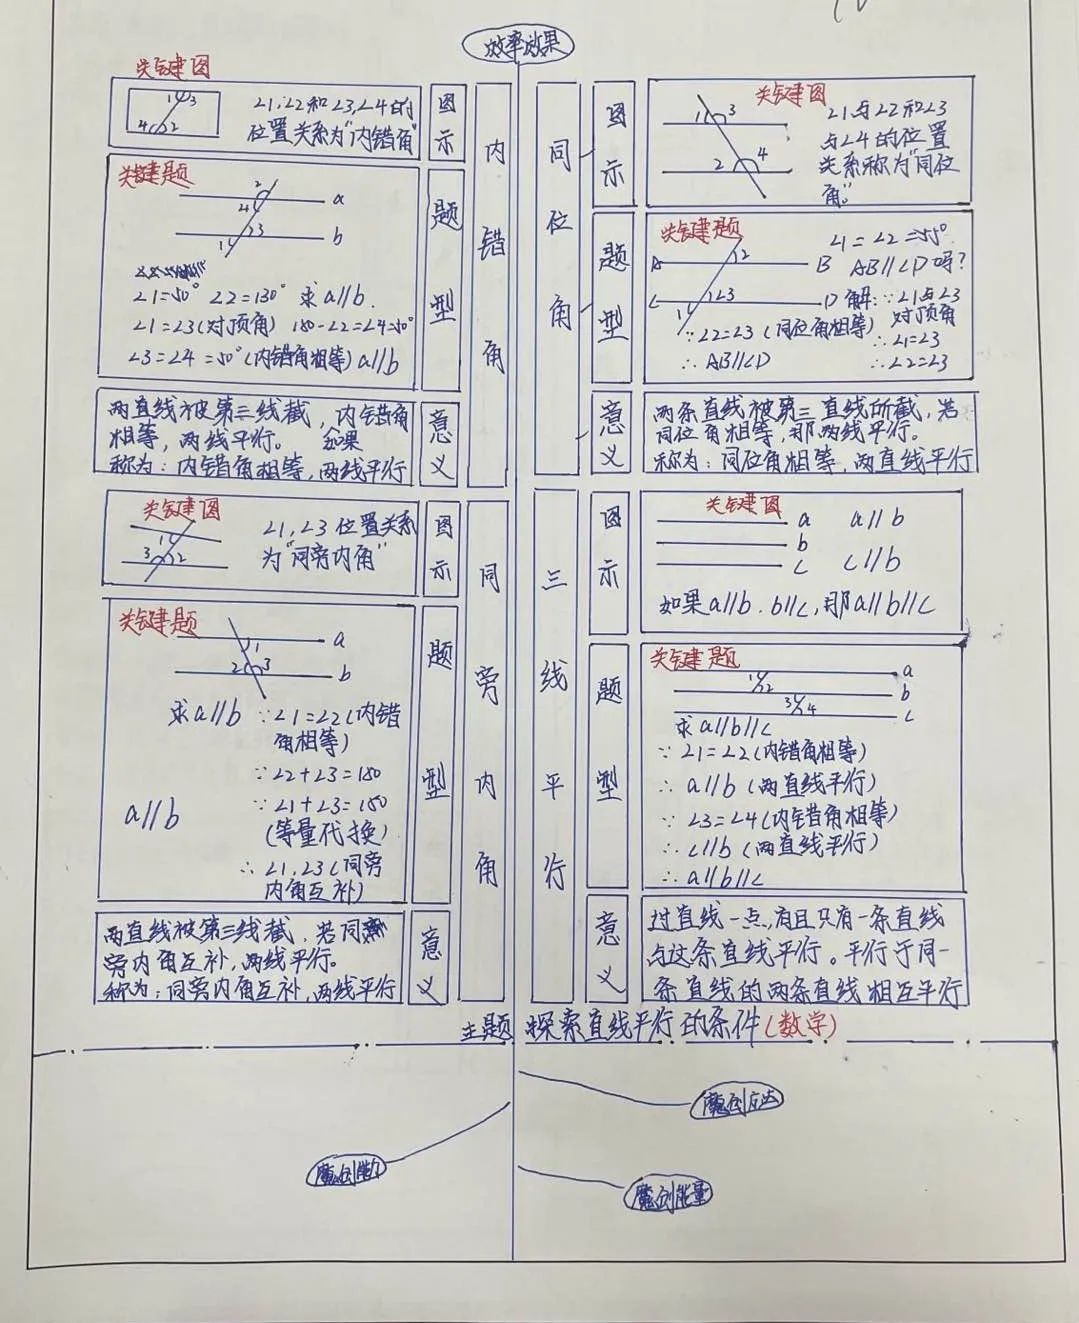 效率效果
关键图
1 3
4 2
∠1,∠2和∠3,∠4的
位置关系为"内错角"
图示
内错角
关键题
2
4
a
3
1
b
∠1=50° ∠2=130° 求a//b.
∠1=∠3(对顶角) 180-∠2=∠4=50°
∠3=∠4=50°(内错角相等)a//b
题型
两直线被第三线截,内错角
相等,两线平行。 如果
称为:内错角相等,两线平行
意义
同位角
图示
关键图
1 3
2 4
∠1与∠2和∠3
与∠4的位置
关系称为"同位
角"
题型
关键题
A 2 B
C 3 D
1
∠1=∠2=55°
AB//CD吗?
解:∵∠1与∠3
对顶角
∴∠1=∠3
∴∠2=∠3
∵∠2=∠3(同位角相等)
∴AB//CD
意义
两条直线被第三直线所截,若
同位角相等,那两线平行。
称为:同位角相等,两直线平行
关键图
1
3 2
∠1,∠3位置关系
为"同旁内角"
图示
同旁内角
关键题
1 a
2 3 b
求a//b ∵∠1=∠2(内错
角相等)
∵∠2+∠3=180
∵∠1+∠3=180
(等量代换)
a//b
∴∠1,∠3(同旁
内角互补)
题型
两直线被第三线截,若同
旁内角互补,两线平行。
称为:同旁内角互补,两线平行
意义
三线平行
图示
关键图
a a//b
b
c c//b
如果a//b.b//c,那a//b//c
题型
关键题
a
1 2
b
3 4
c
求a//b//c
∵∠1=∠2(内错角相等)
∴a//b(两直线平行)
∵∠3=∠4(内错角相等)
∴c//b(两直线平行)
∴a//b//c
意义
过直线一点,有且只有一条直线
与这条直线平行。平行于同一
条直线的两条直线相互平行
主题 探索直线平行的条件(数学)
魔创能量